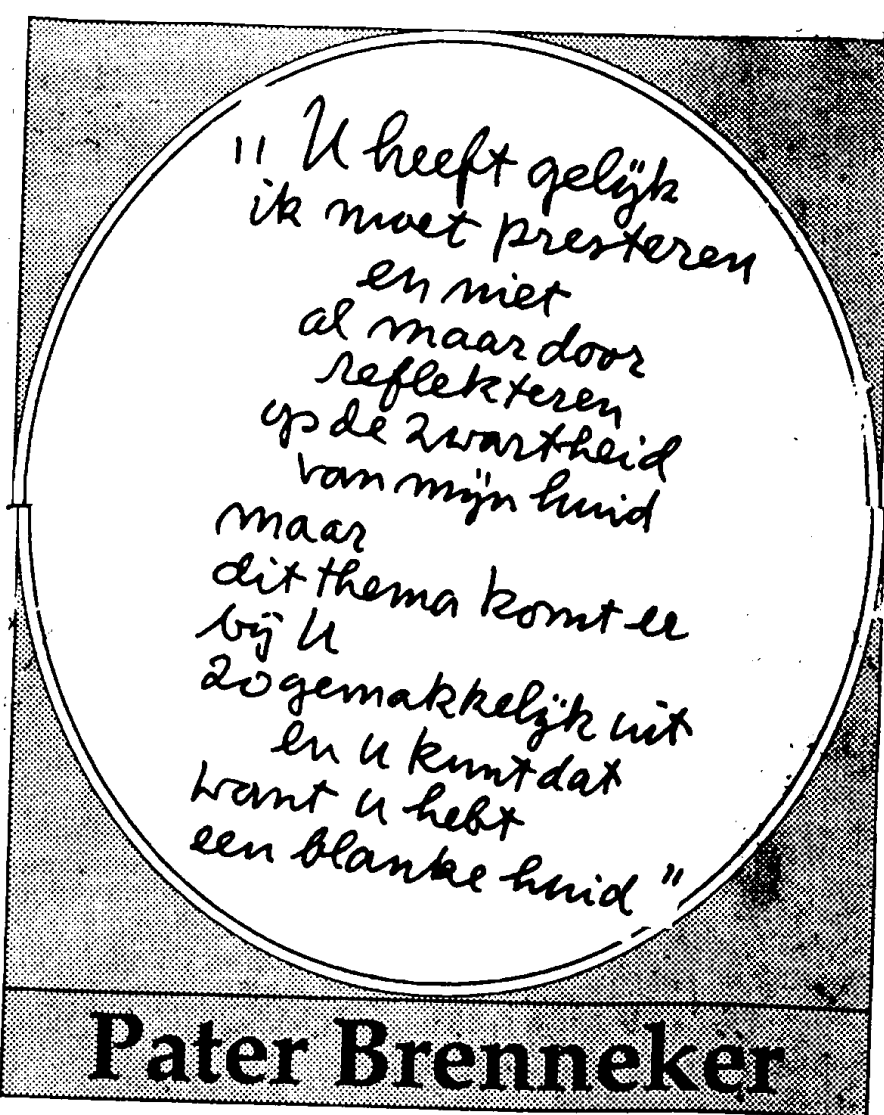 " U heeft gelijk
ik moet presteren
en niet
al maar door
reflekteren
op de zwartheid
van mijn huid
maar
dit thema komt er
bij U
zo gemakkelijk uit
en u kunt dat
want u hebt
een blanke huid "
Pater Brenneker